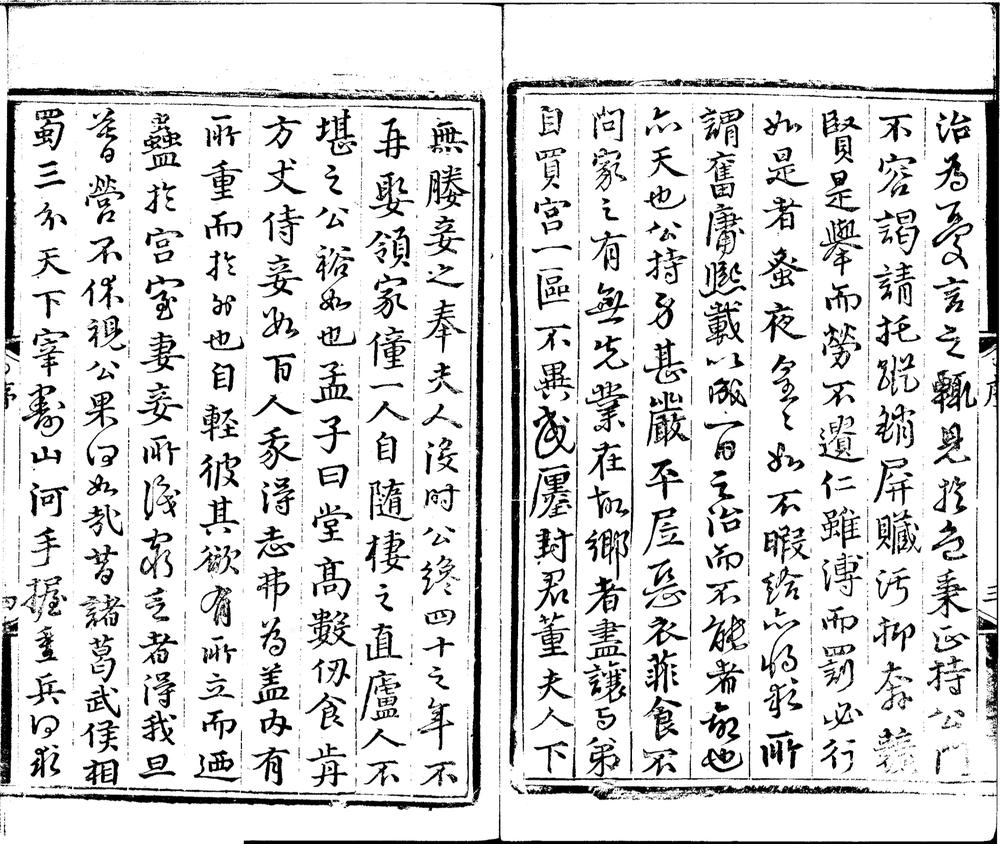 治為憂言之輒見於色秉正持公門
不容謁請托蹤銷屏贓污抑奔競
賢是舉而勞不遺仁雖溥而罰必行
如是者蚤夜皇皇如不暇給亦將求所
謂奮庸熙載以成一日之治而不能者命也
亦天也公持身甚嚴平居惡衣菲食不
問家之有無先業在故鄉者盡讓與弟
自買宮一區不異廛封君董夫人下
無媵妾之奉夫人沒時公纔四十之年不
再娶領家僮一人自隨棲之直廬人不
堪之公裕如也孟子曰堂高數仞食前
方丈侍妾數百人我得志弗為蓋內有
所重而於外也自輕彼其欲有所立而迺
蠱於宮室妻妾所識窮乏者得我旦
暮營不休視公果何如哉昔諸葛武侯相
蜀三分天下宰割山河手握重兵何求
序
三
四